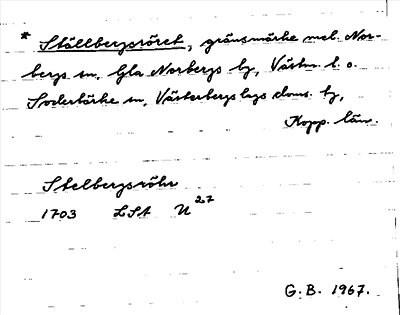 * Ställbergsröret, gränsmärke mel. Nor-
bergs sn, Gla Norbergs by, Västm. l. o.
Söderbärke sn, Västerbergslags doms. tg,
Kopp. län.
Stelbergsröhr
1703 LSA U 27
G. B. 1967.